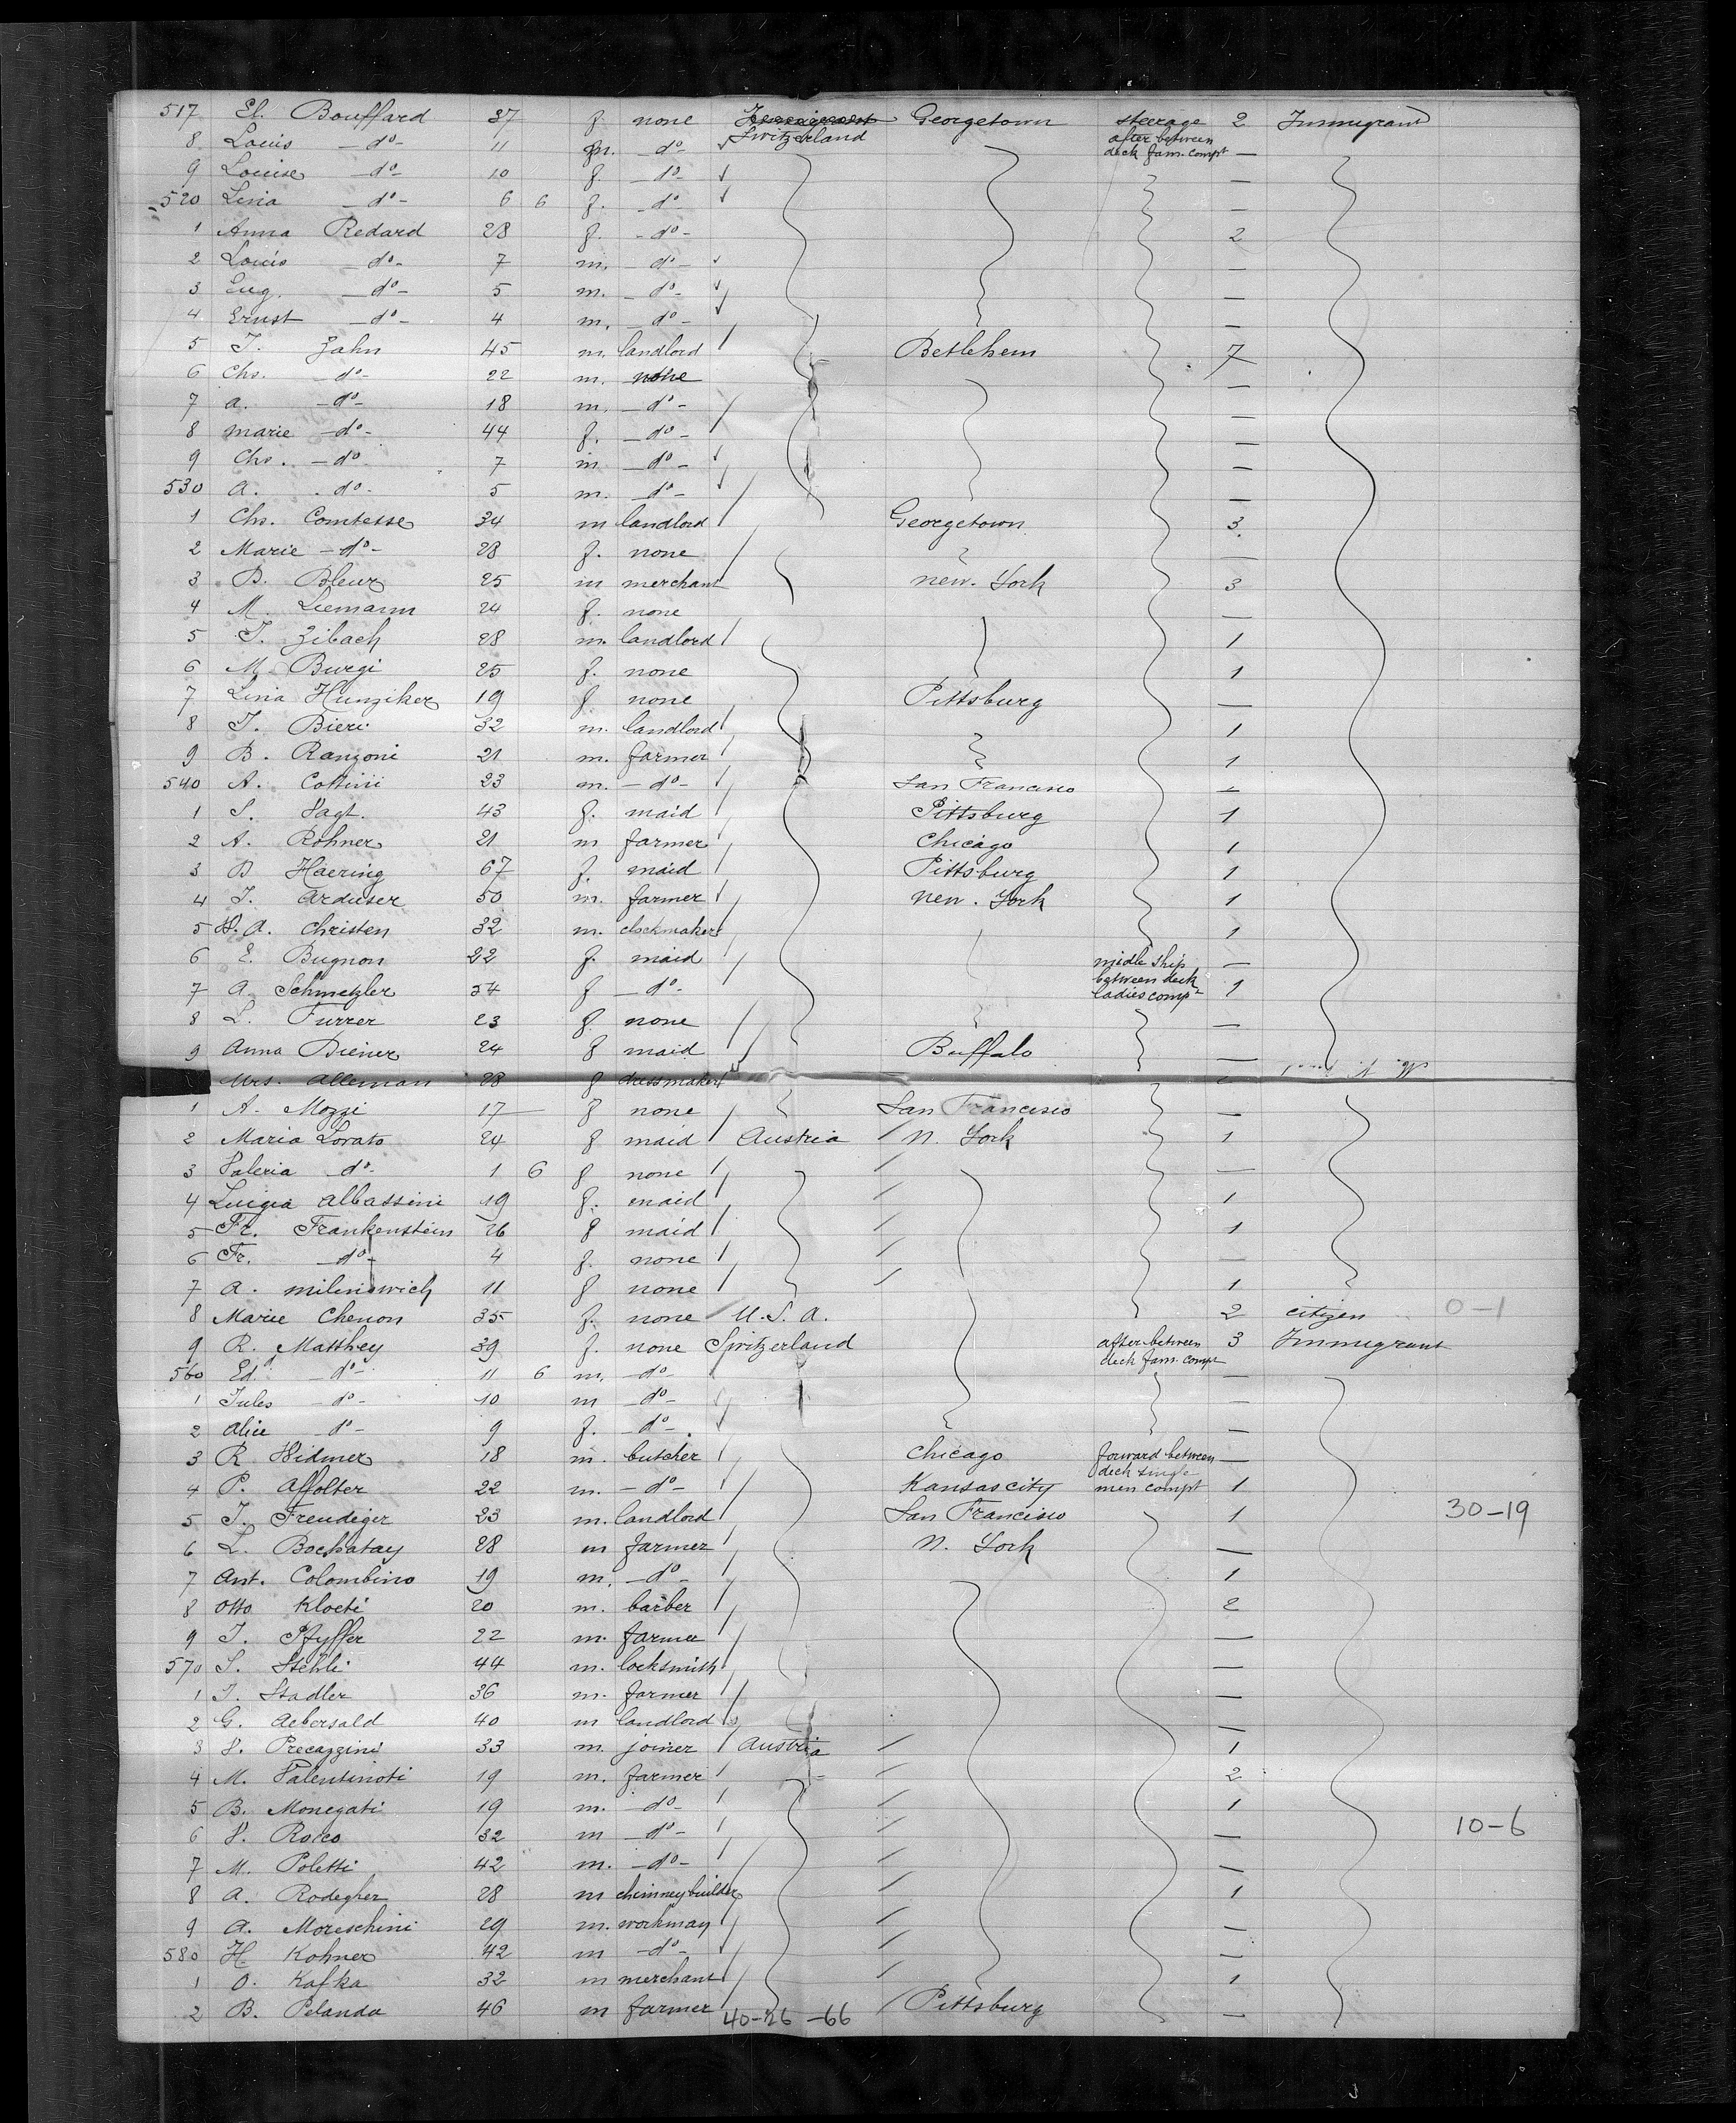 517 El. Bouffard 37 f none Switzerland Georgetown steerage 2 Immigrant
8 Louis -do- 11 m. -do- after between deck fam. compt -
9 Louise -do- 10 f. -do- -
520 Lina -do- 6 6 f. -do- -
1 Anna Redard 28 f. -do- 2
2 Louis -do- 7 m. -do- -
3 Eug. -do- 5 m. -do- -
4 Ernst -do- 4 m. -do- -
5 J. Zahn 45 m. landlord Betlehem 7
6 Chs. -do- 22 m. none -
7 a. -do- 18 m. -do- -
8 marie -do- 44 f. -do- -
9 Chs. -do- 7 m -do- -
530 a. -do- 5 m. -do- -
1 Chs. Comtesse 34 m landlord Georgetown 3.
2 Marie -do- 28 f. none -
3 B. Bleuz 25 m merchant new. York 3
4 M. Liemann 24 f. none -
5 J. Zibach 28 m. landlord 1
6 M. Burgi 25 f. none 1
7 Lina Hunziker 19 f none Pittsburg -
8 J. Bieri 32 m. landlord 1
9 B. Ranzoni 21 m. farmer 1
540 A. Cottini 23 m. -do- San Francisco 1
1 S. Vagt. 43 f. maid Pittsburg 1
2 A. Rohner 21 m farmer Chicago 1
3 B Haering 67 f. maid Pittsburg 1
4 J. Arduser 50 m. farmer new. York 1
5 H. A. Christen 32 m. clockmaker 1
6 E. Bugnon 22 f. maid midle ship -
7 A. Schmetzler 34 f -do- between deck ladies compt 1
8 L. Furrer 23 f. none -
9 Anna Diener 24 f maid Buffalo -
Mrs. Alleman 28 f dressmaker
1 A. Mozzi 17 f none San Francisco -
2 Maria Lorato 24 f maid Austria N. York 1
3 Valeria do- 1 6 f none -
4 Luigia Albassini 19 f. maid 1
5 Fr. Frankenstein 26 f maid 1
6 Fr. do- 4 f. none -
7 A. milinowich 11 f none 1
8 Marie Chenon 35 f. none U.S.A. 2 citizen 0-1
9 R. Matthey 39 f. none Switzerland after between deck fam. compt 3 Immigrant
560 Ed. do- 11 6 m. -do- -
1 Jules do- 10 m -do- -
2 Alice do- 9 f. -do- -
3 R Widmer 18 m. butcher Chicago forward between -
4 P. Affolter 22 m. -do- Kansas city deck single men compt 1
5 J. Freudiger 23 m. landlord San Francisco 1 30-19
6 L. Bochatay 28 m farmer N. York -
7 Ant. Colombino 19 m. -do- 1
8 Otto Kloeti 20 m. barber 2
9 J. Pfyffer 22 m. farmer -
570 S. Stehli 44 m. locksmith -
1 J. Stadler 36 m. farmer -
2 G. Aebersald 40 m landlord -
3 V. Precazzini 33 m. joiner Austria 1
4 M. Valentinoti 19 m. farmer 2
5 B. Monegati 19 m. -do- 1
6 V. Rocco 32 m -do- - 10-6
7 M. Poletti 42 m. -do- -
8 A. Rodegher 28 m chimney builder 1
9 A. Moreschini 29 m. workman -
580 H. Kohner 42 m -do- -
1 O. Kafka 32 m merchant 1
2 B. Pelanda 46 m farmer Pittsburg -
40-26-66